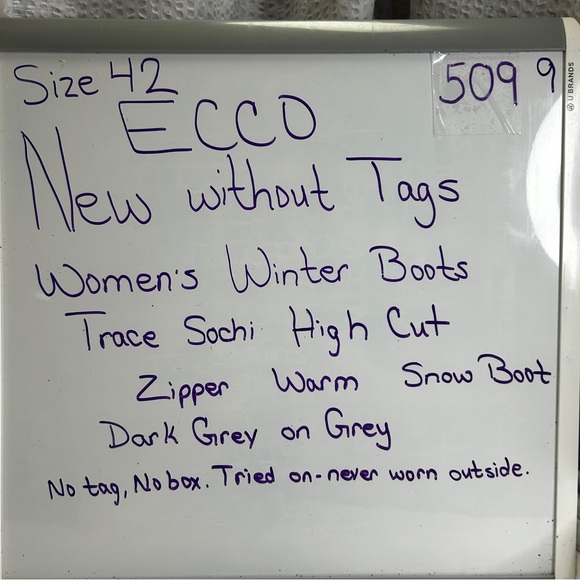 Size 42
509 9
ECCO
New without Tags
Women's Winter Boots
Trace Sochi High Cut
Zipper Warm Snow Boot
Dark Grey on Grey
No tag, No box. Tried on-never worn outside.
U BRANDS